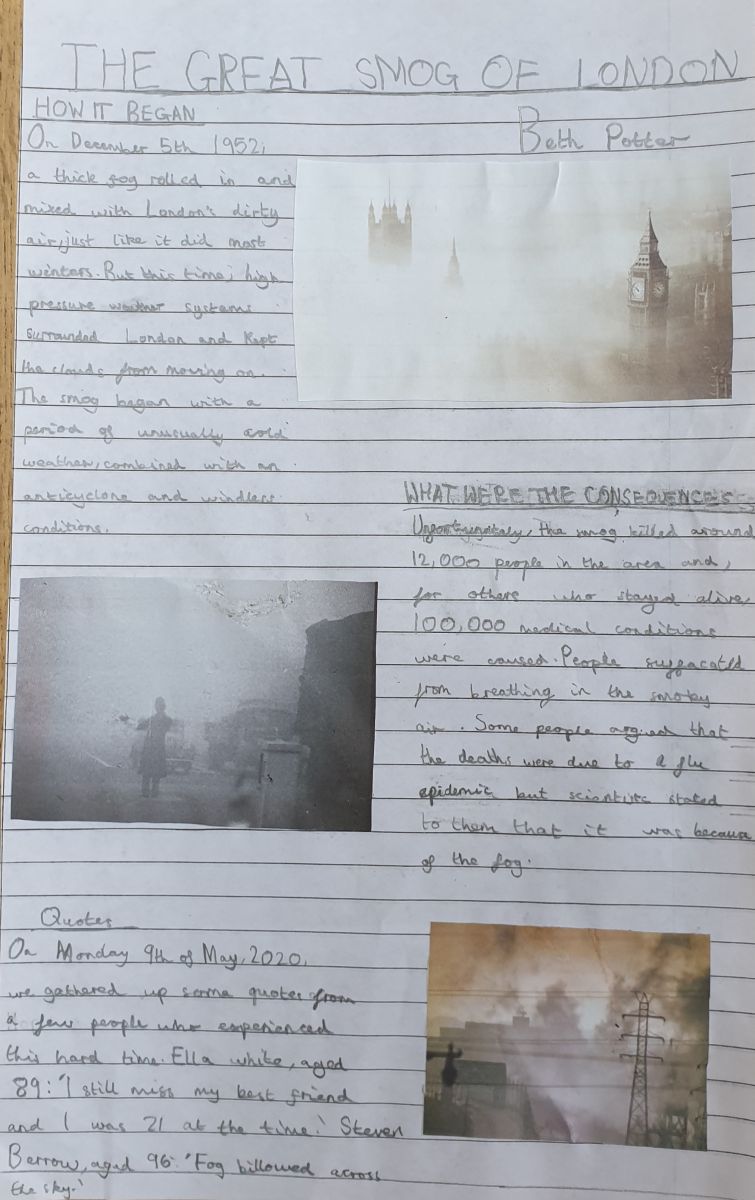 THE GREAT SMOG OF LONDON
HOW IT BEGAN
Beth Potter
On December 5th 1952,
a thick fog rolled in and
mixed with London's dirty
air, just like it did most
winters. But this time, high
pressure weather systems
surrounded London and kept
the clouds from moving on.
The smog began with a
period of unusually cold
weather, combined with an
anticyclone and windless
conditions.
WHAT WERE THE CONSEQUENCES
Unfortunately, the smog killed around
12,000 people in the area and,
for others who stayed alive,
100,000 medical conditions
were caused. People suffocated
from breathing in the smoky
air. Some people argued that
the deaths were due to a flu
epidemic but scientists stated
to them that it was because
of the fog.
Quotes
On Monday 9th of May, 2020,
we gathered up some quotes from
a few people who experienced
this hard time. Ella white, aged
89: 'I still miss my best friend
and I was 21 at the time.' Steven
Berrow, aged 96: 'Fog billowed across
the sky.'